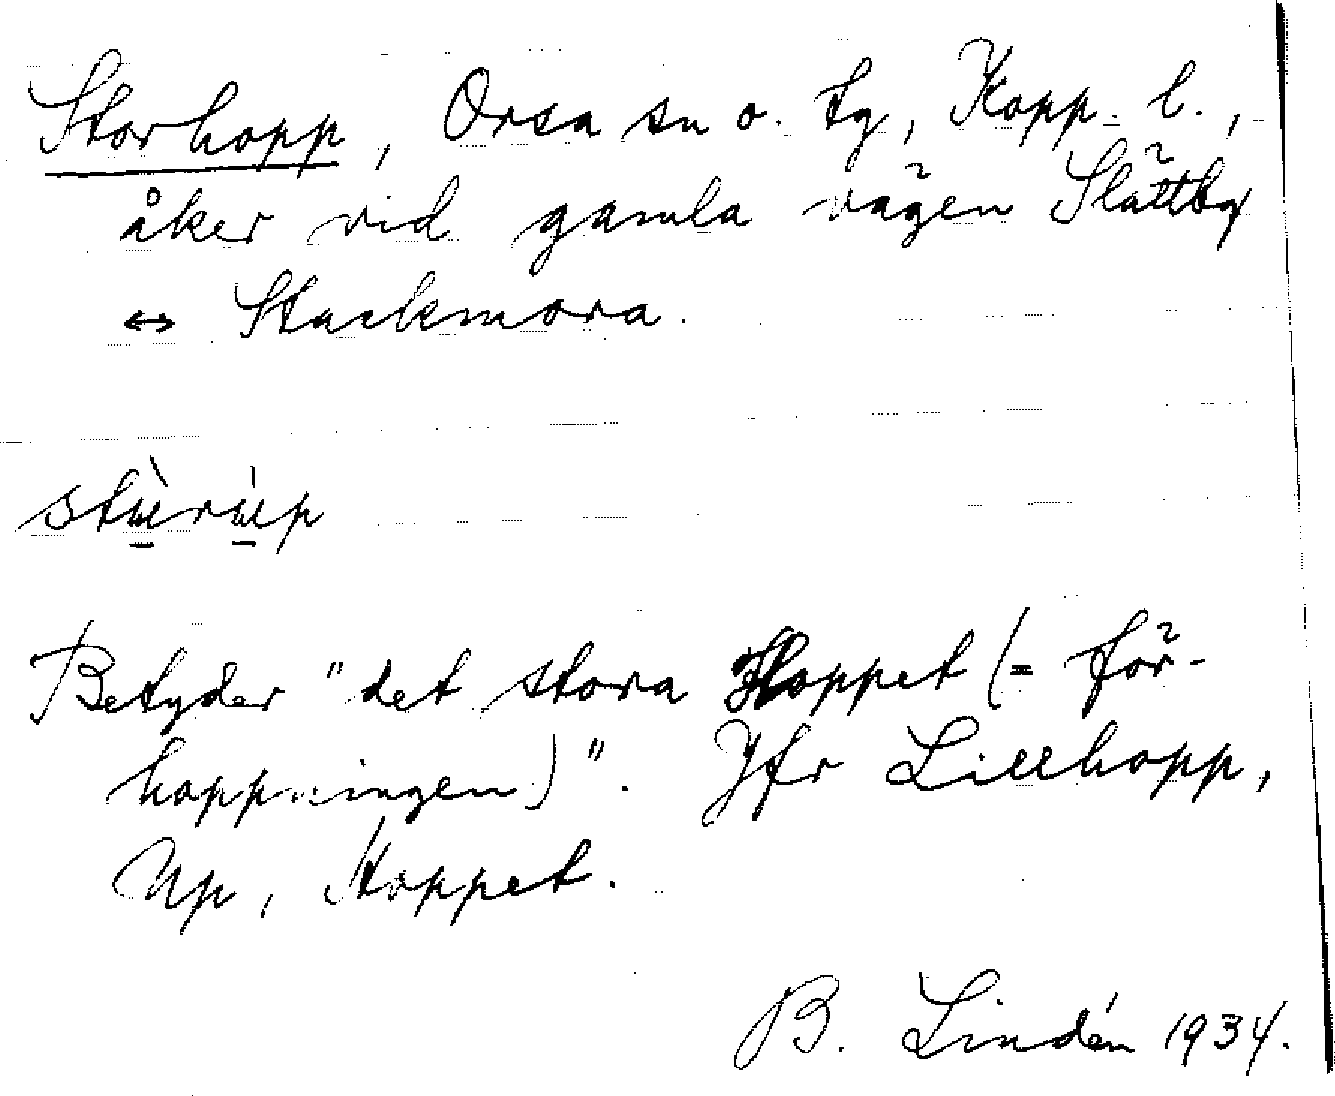 Storhopp, Orsa sn o. tg, Kopp. l.,
åker vid gamla vägen Slättby
↔ Stackmora.
stùrùp
Betyder "det stora Hoppet (= för-
hoppningen)". Jfr Lillhopp,
Up, Hoppet.
B. Lindén 1934.